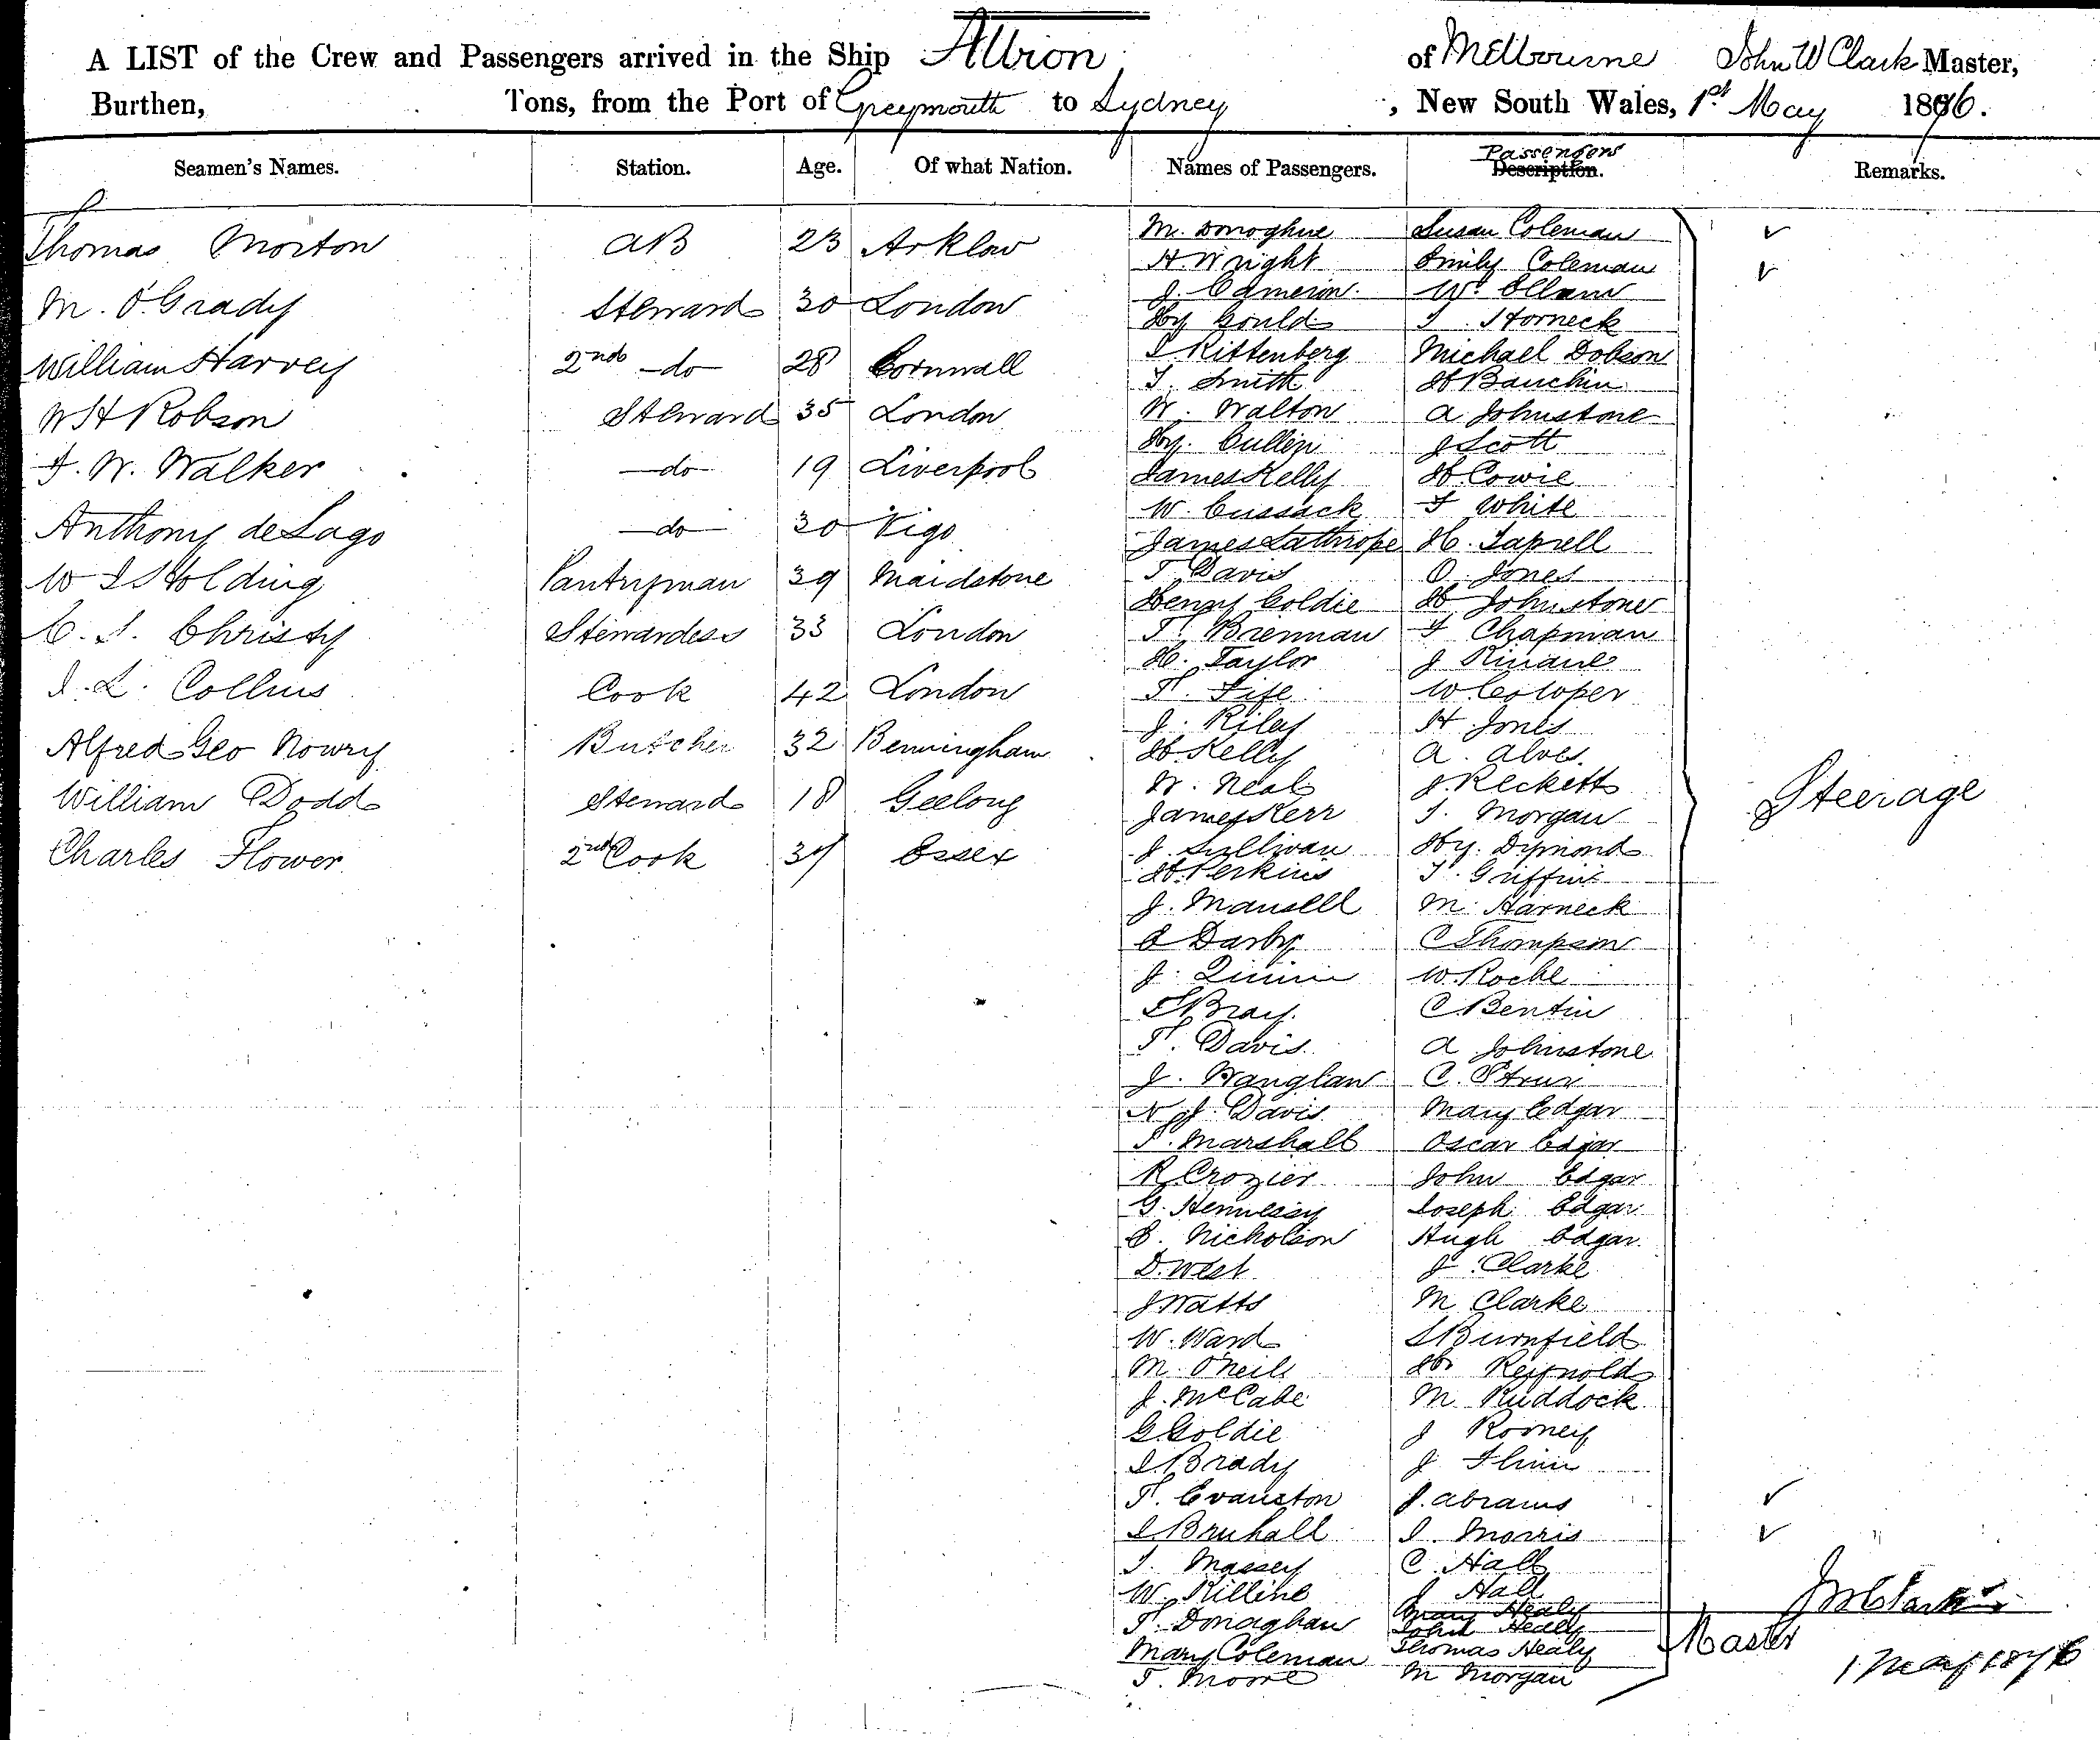 A LIST of the Crew and Passengers arrived in the Ship Albion of Melbourne John W Clark Master,
Burthen, Tons, from the Port of Greymouth to Sydney, New South Wales, 1st May 1876.
Seamen's Names. Station. Age. Of what Nation. Names of Passengers. Passengers Description. Remarks.
Thomas Morton AB 23 Arklow
M. O'Grady Steward 30 London
William Harvey 2nd do 28 Cornwall
W H Robson Steward 35 London
F. W. Walker do 19 Liverpool
Anthony de Lago do 30 Vigo
W I Holding Pantryman 39 Maidstone
C. S. Christy Stewardess 33 London
I. L. Collins Cook 42 London
Alfred Geo Nowry Butcher 32 Bermingham
William Dodd Steward 18 Geelong
Charles Flower 2nd Cook 37 Essex
M. Donoghue Susan Coleman
H. Wright Emily Coleman
J. Cameron Wm Ellam
Hy Gould T. Horneck
S Rittenberg Michael Dobson
T. Smith H Bauchin
W. Walton A Johnstone
Hy. Cullen J Scott
James Kelly H. Cowie
W. Cussack F White
James Lathrope H. Taprell
T Davis O. Jones
Henry Goldie H Johnstone
T. Brennan F Chapman
H. Taylor J Kinane
T. Fife W. Cowper
J. Riley H Jones
H. Kelly A. Alves.
W. Neal J. Recketts
James Kerr T. Morgan
J Sullivan Hy. Dymond
H. Perkins T. Griffin
J. Mansell M. Harneck
A Darby C Thompson
J. Quinn W. Roche
S Bray. C Bentin
T. Davis. A Johnstone
J. Wanglan C.
N J. Davis. Mary Edgar
T. Marshall Oscar Edgar
R. Crozier John Edgar
G. Hennessy Joseph Edgar
E. Nicholson Hugh Edgar
D. West J. Clarke
J Watts M Clarke
W. Ward S Burnfield
M. O'Neill H. Reynolds
J. McCabe M Ruddock
G. Goldie J Rooney
I. Brady J Flinn
T. Evanston J. Abrams
I. Bruhall I. Morris
T. Massey C. Hall
W. Killine J Hall
T. Donaghan Mary Healy
John Healy
Mary Coleman Thomas Healy
T. Moore M Morgan
Steerage
J W Clark
Master
1 May 1876